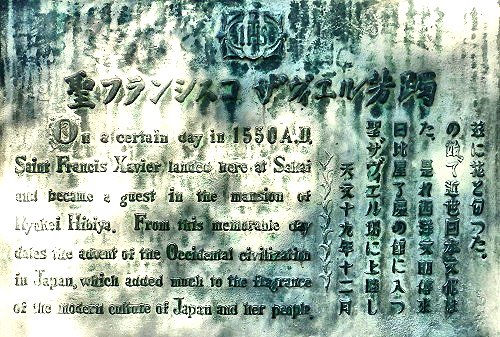 IHS
聖フランシスコ ザヴィエル芳躅
On a certain day in 1550 A.D.
Saint Francis Xavier landed here at Sakai
and became a guest in the mansion of
Ryokei Hibiya. From this memorable day
dates the advent of the Occidental civilization
in Japan, which added much to the fragrance
of the modern culture of Japan and her people.
天文十九年十二月
聖ザヴィエル堺に上陸し
日比屋了慶の館に入つ
た。是れ西洋文明伝来
の 近世日本文化は
茲に花と匂つた。